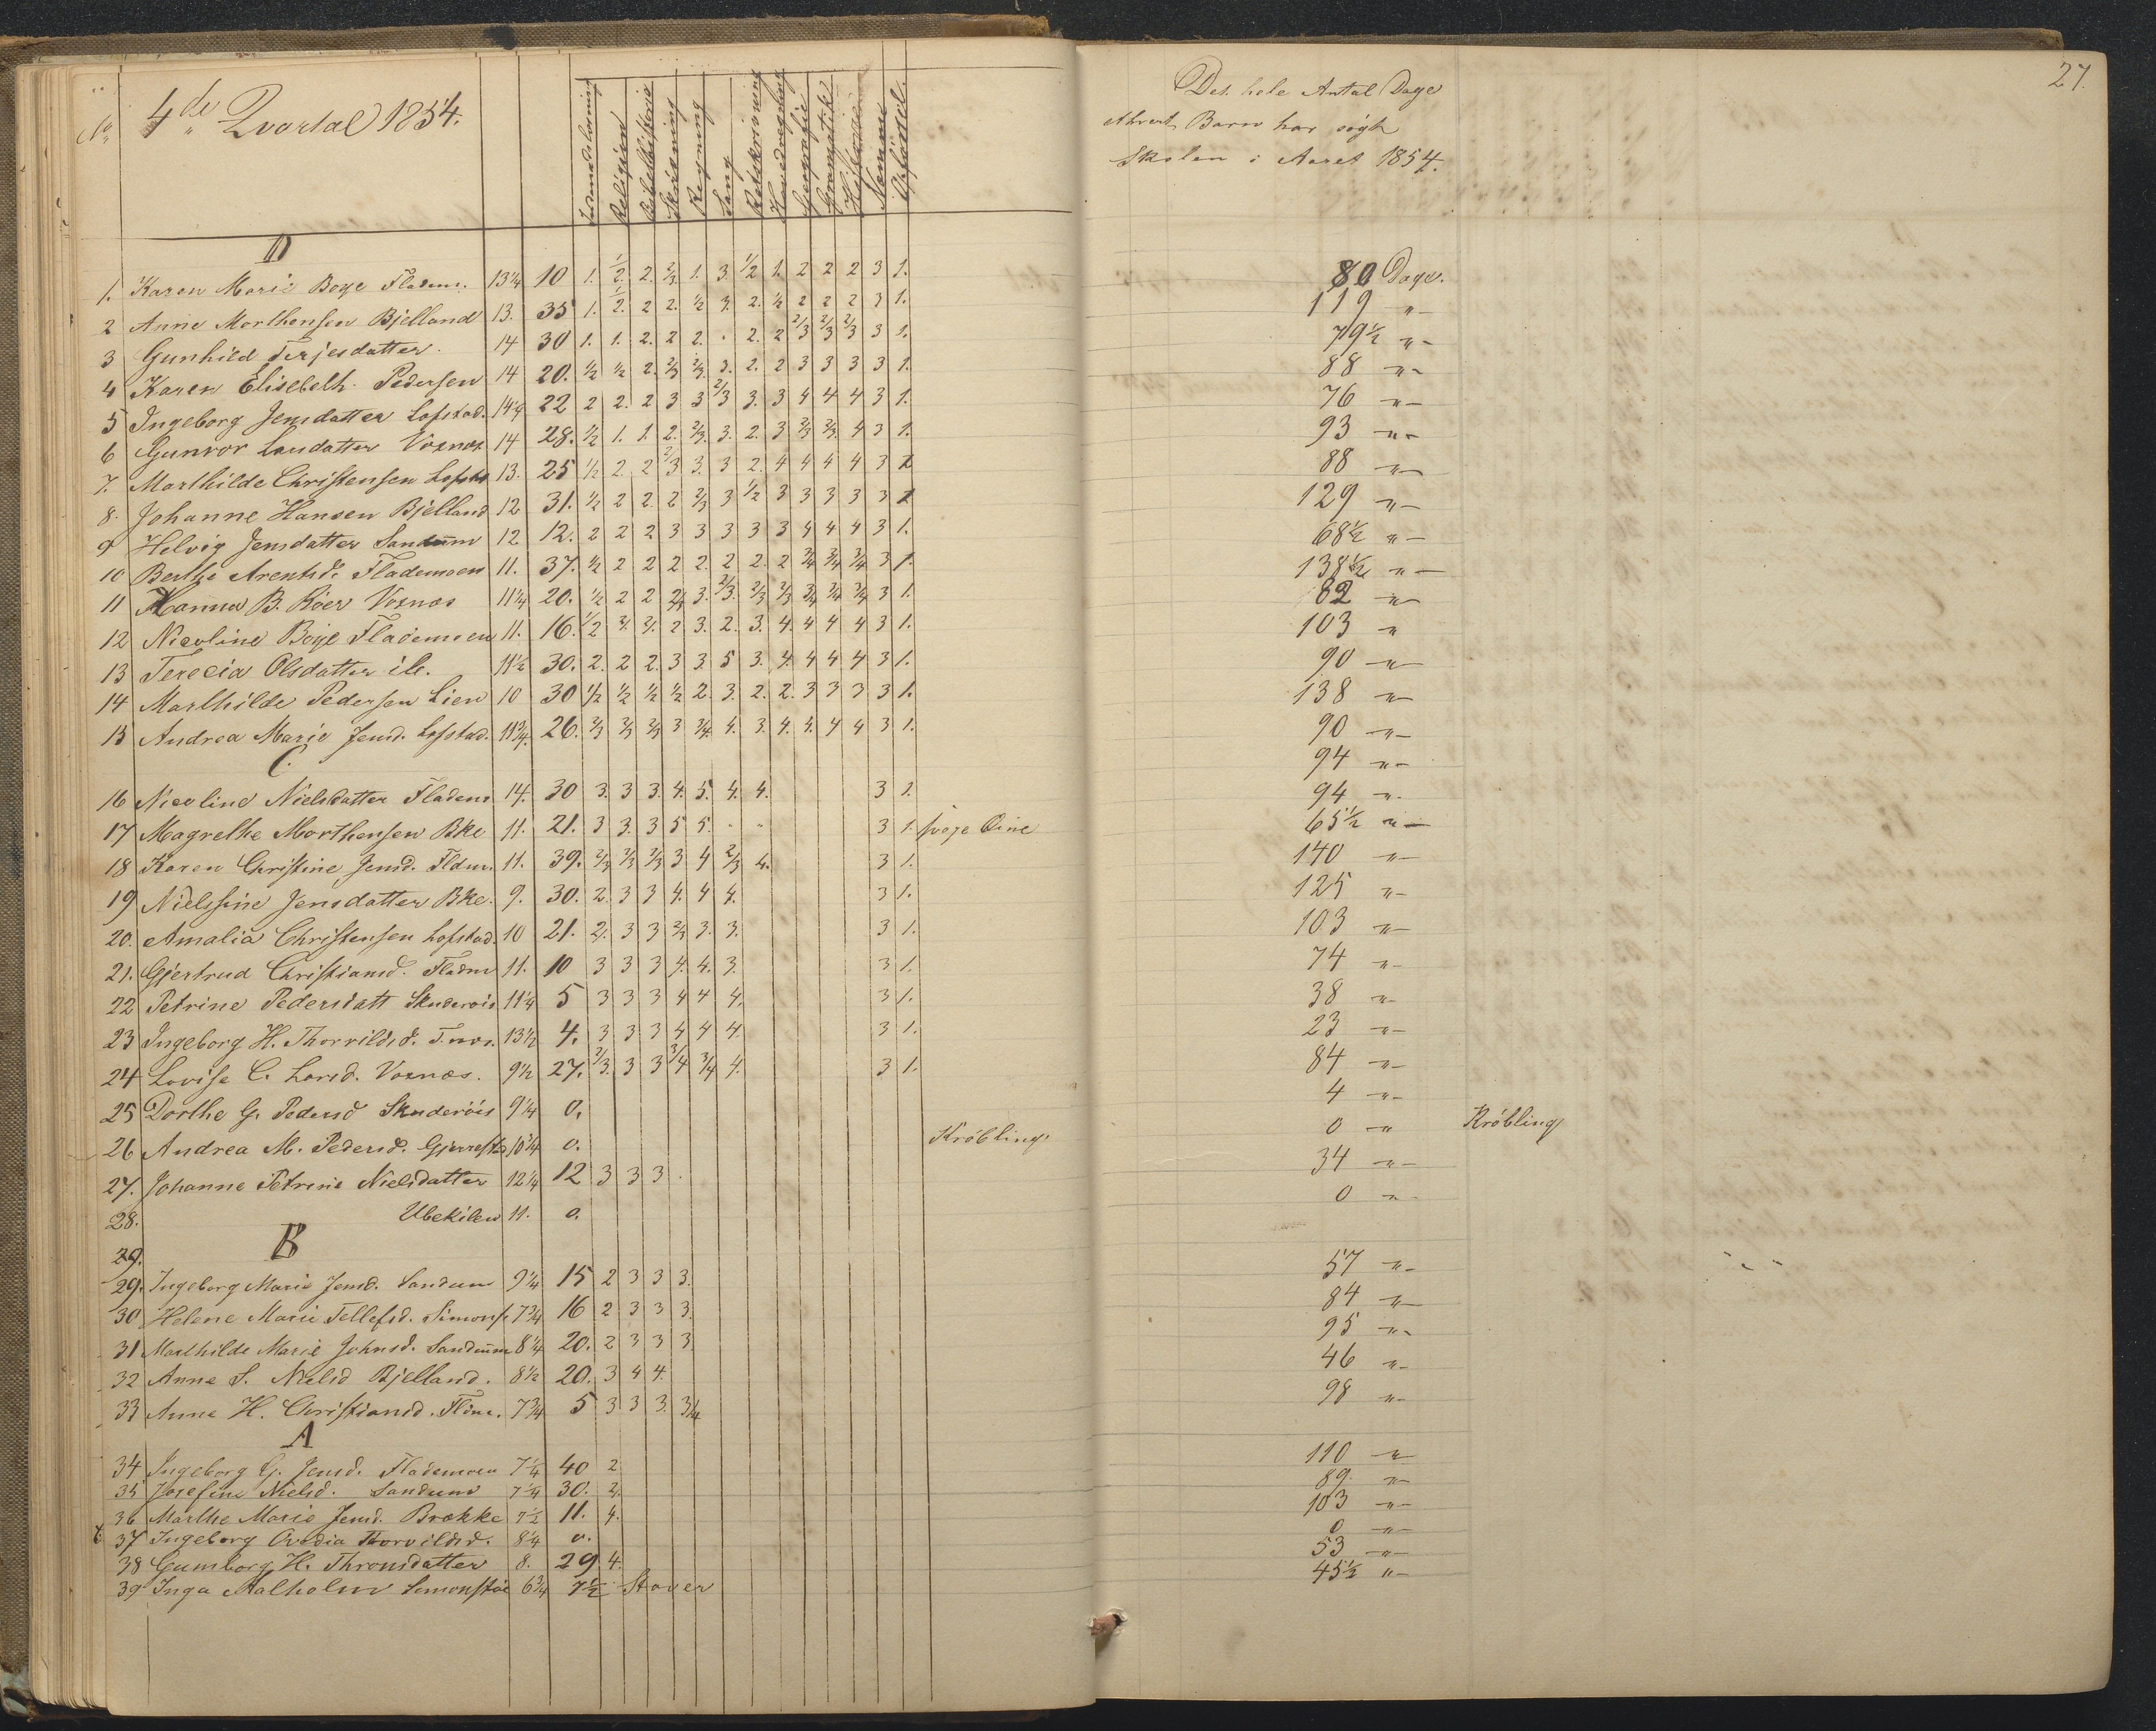 No 4de Qvartal 1854.
Indenadslæsning Religion Bibelhistorie Skrivning Regning Sang Retskrivning Hovedregning Geografie Gramatik Historie Næmme Opførsel
D
1. Karen Marie Boye Fladem. 13¼ 10 1. ½ 2. 2/3 1. 3. ½ 1. 2 2 2 3 1.
2 Anne Morthensen Bjelland 13. 35 1. ½ 2. 2. ½ 3. 2. ½ 2 2 2 3 1.
3 Gunhild Terjesdatter. 14 30 1. 1. 2. 2 2. . 2. 2 2/3 2/3 2/3 3 1.
4 Karen Elisebelh. Pedersen 14 20. ½ ½ 2. 2/3 2/3 3. 2. 2 3 3 3 3 1.
5 Ingeborg Jensdatter Lofstad. 14¼ 22 2 2. 2 3 3 2/3 3. 3 4 4 4 3 1.
6 Gunvor Larsdatter Voxnæs 14 28. ½ 1. 1. 2. 2/3 3. 2. 3 2/3 2/3 4 3 1.
7. Marthilde Christensen Lofstad 13. 25 ½ 2. 2 2/3 3. 3 2. 4 4 4 4 3 1
8. Johanne Hansen Bjelland 12 31. ½ 2 2. 2 2/3 3 ½ 3 3 3 3 3 1
9 Helvig Jensdatter Sandum 12 12. 2 2 2 3 3 3 3 3 4 4 4 3 1.
10 Berthe Arentsd. Flademoen 11. 37. ½ 2 2 2 2. 2 2. 2 3/4 3/4 3/4 3 1.
11 Hanna B. Köer Voxnæs 11¼ 20. ½ 2 2 2/3 3. 2/3. 2/3 2/3 3/4 3/4 3/4 3 1.
12 Nicoline Boye Flademoen 11. 16. ½ 2. 2. 2 3. 2. 3. 4. 4 4 4 3 1.
13 Terecia Olsdatter ile. 11½ 30. 2. 2 2. 3 3. 5 3. 4. 4 4 4 3 1.
14 Marthilde Pedersen Lien 10 30 ½ ½ ½ ½ 2. 3. 2. 2. 3 3 3 3 1.
15 Andrea Marie Jensd. Lofstad. 11¾. 26. 2/3 2/3 2/3 3 3/4 4. 3. 4. 4. 4 4 3 1.
C.
16 Nicoline Nielsdatter Fladem 14. 30 3. 3 3. 4. 5. 4. 4. 3 1.
17 Magrethe Morthensen Bke 11. 21. 3 3. 3 5 5. - " 3 1. svage Öine
18 Karen Christine Jensd. Fldm. 11. 39. 2/3 2/3 2/3 3 4 2/3 4. 3 1.
19 Nielssine Jensdatter Bke. 9. 30. 2. 3 3 4. 4 4. 3 1.
20. Amalia Christensen Lofstad. 10 21. 2. 3 3 2/3 3. 3. 3 1.
21. Gjertrud Christiansd. Fladm 11. 10 3 3 3 4. 4. 3. 3 1.
22 Petrine Pedersdatt Skuderöis 11¼ 5 3 3 3 4 4 4. 3 1.
23 Ingeborg H. Thorvildsd. 13½ 4. 3 3 3 4 4 4. 3 1.
24 Lovise C. Larsd. Voxnæs. 9½ 27. 2/3. 3 3 3/4 3/4 4. 3 1.
25 Dorthe G. Pedersd Skuderöis 9¼ 0.
26 Andrea M. Pedersd. Gjerrestd 10¾ 0. Kröbling.
27. Johanne Petrine Nielsdatter 12¼ 12 3 3 3 .
28. Ubekilen 11. 0.
29. B
29. Ingeborg Marie Jensd. Sandum 9¼ 15 2 3 3 3.
30 Helene Marie Tellefsd. Simonst 7¾ 16 2 3 3 3.
31 Marthilde Marie Johnsd. Sandum 8¼ 20. 2 3 3 3
32 Anne S. Nielsd Bjelland. 8½ 20. 3 4 4.
33 Anne H. Christiansd. Fldm. 7¾ 5 3 3 3. 3/4
A
34 Ingeborg G. Jensd. Flademoen 7¼ 40 2
35 Josefine Nielsd. Sandum 7¼ 30. 2.
36 Marthe Marie Jensd. Brække 7½ 11. 4.
37 Ingeborg Ovedia Thorvildsd. 8¼ 0.
38 Gumborg H. Thronsdatter 8. 29. 4.
39 Inga Aalholm Simonstöe 6¾ 7½ Staver
27.
Det hele Antal Dage
ethvert Barn har sögt
Skolen i Aaret 1854.
80 Dage.
119 "
79½ "
88 "
76 "
93 "
88 "
129 "
68½ "
138½ "
82 "
103 "
90 "
138 "
90 "
94 "
94 "
65½ "
140 "
125 "
103 "
74 "
38 "
23 "
84 "
4 "
0 " Kröbling
34 "
0 "
57 "
84 "
95 "
46 "
98 "
110 "
89. "
103 "
0 "
53 "
45½ "